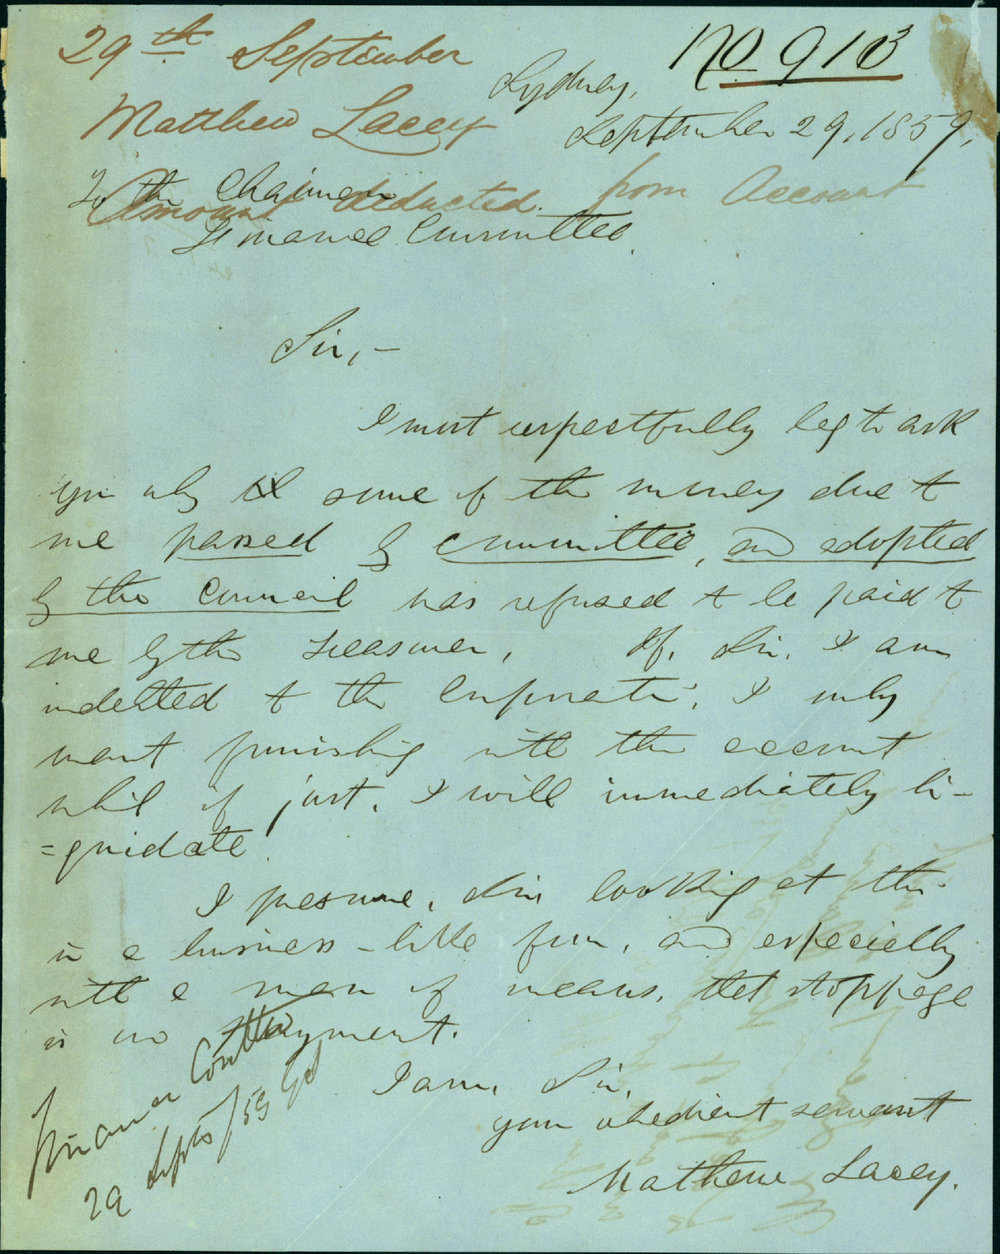 29th September
No 913
Sydney,
Matthew Lacey
September 29, 1859,
To the Chairman
Amount deducted from Account
Finance Committee.
Sir,-
I most respectfully beg to ask
you why some of the money due to
me passed by committee, and adopted
by the Council was refused to be paid to
me by the Treasurer, If, Sir, I am
indebted to the Corporati: I only
want furnishing with the account
which if just, I will immediately li-
=quidate.
I presume, Sir, looking at this
in a business-like from, and especially
with a man of means, that stoppage
is no payment.
I am, Sir,
your obedient servant
Matthew Lacey.
Finance Comttee
29 Septr/59